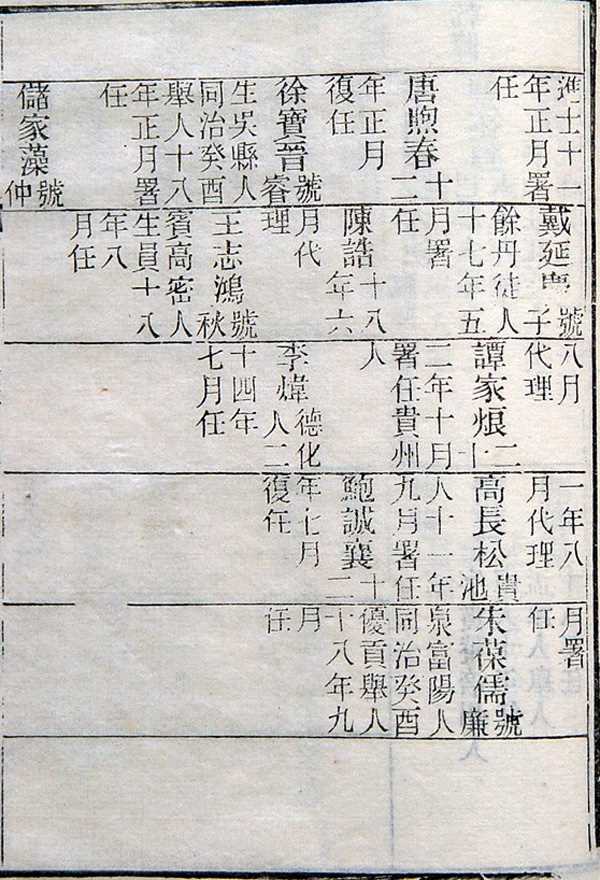 進士十一
年正月署
任
唐煦春十二
年正月
復任
徐寶晉號睿
生吳縣人
同治癸酉
舉人十八
年正月署
任
儲家藻號仲
戴延號子
餘丹徒人
十七年五
月署
任
陳誥十八年六
月代
理
王志鴻號秋
賓高密人
生員十八
年八
月任
八月
代理
譚家烺二十
二年十月
署任貴州
人
李煒德化人二
十四年
七月任
一年八
月代理
高長松貴池
人十一年
九月署任
鮑誠襄十二
年七月
復任
月署
任
朱葆儒號廉
泉富陽人
同治癸酉
優貢舉人
十八年九
月
任